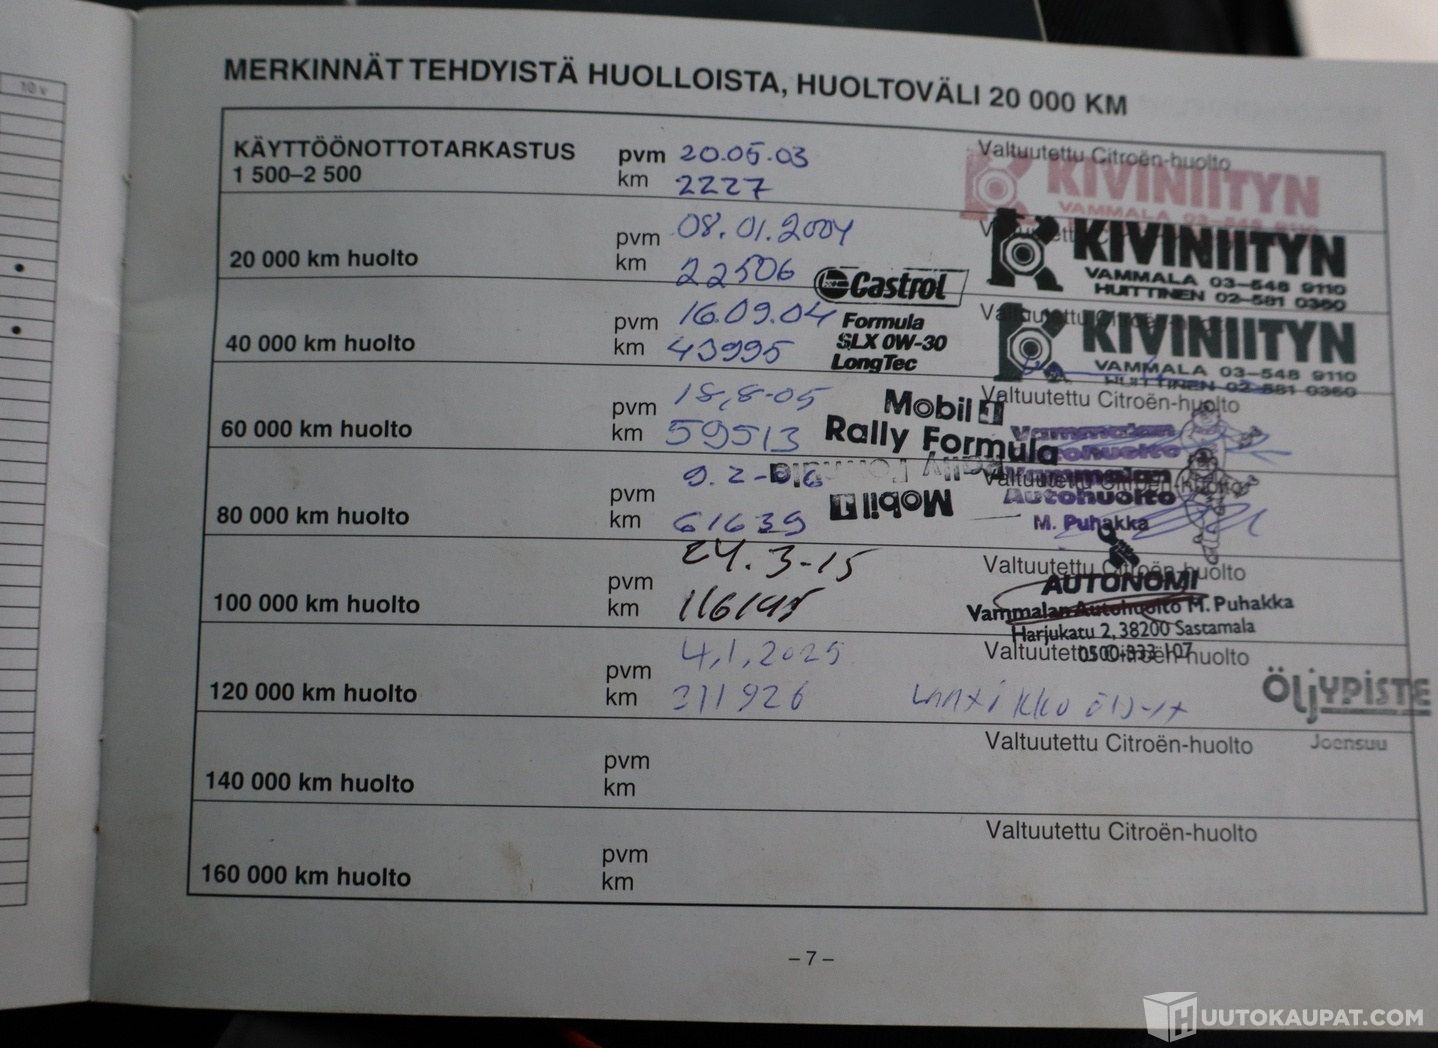 10 v
MERKINNÄT TEHDYISTÄ HUOLLOISTA, HUOLTOVÄLI 20 000 KM
KÄYTTÖÖNOTTOTARKASTUS
1 500–2 500
pvm 20.05.03
km 2227
Valtuutettu Citroën-huolto
KIVINIITYN
VAMMALA 03-548 9110
20 000 km huolto
pvm 08.01.2004
km 22506
KIVINIITYN
VAMMALA 03-548 9110
HUITTINEN 02-581 0360
Castrol
Formula
SLX 0W-30
LongTec
40 000 km huolto
pvm 16.09.04
km 43995
KIVINIITYN
VAMMALA 03-548 9110
HUITTINEN 02-581 0360
60 000 km huolto
pvm 18,8-05
km 59513
Mobil 1
Rally Formula
Valtuutettu Citroën-huolto
Vammalan
Autohuolto
80 000 km huolto
pvm 9.2-06
km 61639
Rally Formula
Mobil 1
Valtuutettu Citroën-huolto
Vammalan
Autohuolto
M. Puhakka
100 000 km huolto
pvm 24.3-15
km 116145
Valtuutettu Citroën-huolto
AUTONOMI
Vammalan Autohuolto M. Puhakka
Harjukatu 2, 38200 Sastamala
0500-333 107
120 000 km huolto
pvm 4,1,2025
km 311926
Valtuutettu Citroën-huolto
ÖLJYPISTE
Joensuu
140 000 km huolto
pvm
km
Valtuutettu Citroën-huolto
160 000 km huolto
pvm
km
Valtuutettu Citroën-huolto
– 7 –
HUUTOKAUPAT.COM